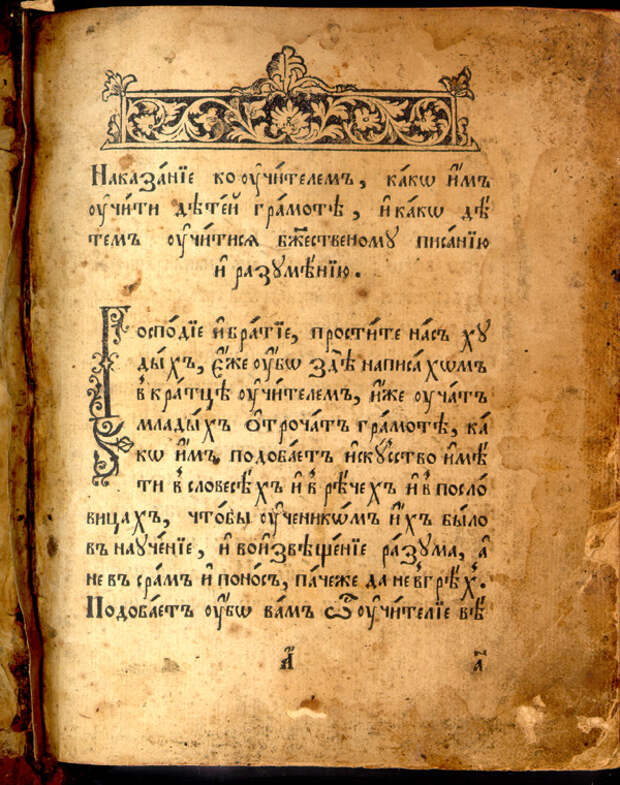 Наказа́нїе ко оу҆чи́телемъ, ка́кѡ и҆̀мъ
оу҆чи́ти дѣте́й гра́мотѣ, и҆ ка́кѡ дѣ́
темъ оу҆чи́тися бж҃е́ственому писа́нїю
и҆ разумѣ́нїю.
Господі́е и҆ бра́тїе, прости́те на́съ ху
ды́хъ, є҆́же оу҆́бѡ здѣ̀ написа́хѡмъ
в̾кра́тцѣ оу҆чи́телемъ, и҆̀же оу҆ча́тъ
млады́хъ ѻ҆троча́тъ гра́мотѣ, ка́
кѡ и҆̀мъ подоба́етъ и҆ску́сство и҆мѣ́
ти в̾словесѣ́хъ и҆ в̾рѣ́чехъ и҆ в̾посло́
вицахъ, что́бы оу҆ченикѡ́мъ и҆́хъ бы́ло
въ науче́нїе, и҆ во и҆звѣще́нїе ра́зума, а҆
не въ сра́мъ и҆ поно́съ, па́че же да не в̾грѣ́хъ.
Подоба́етъ оу҆́бѡ ва́мъ ѽ оу҆чи́телїе вѣ́
а҃ а҃